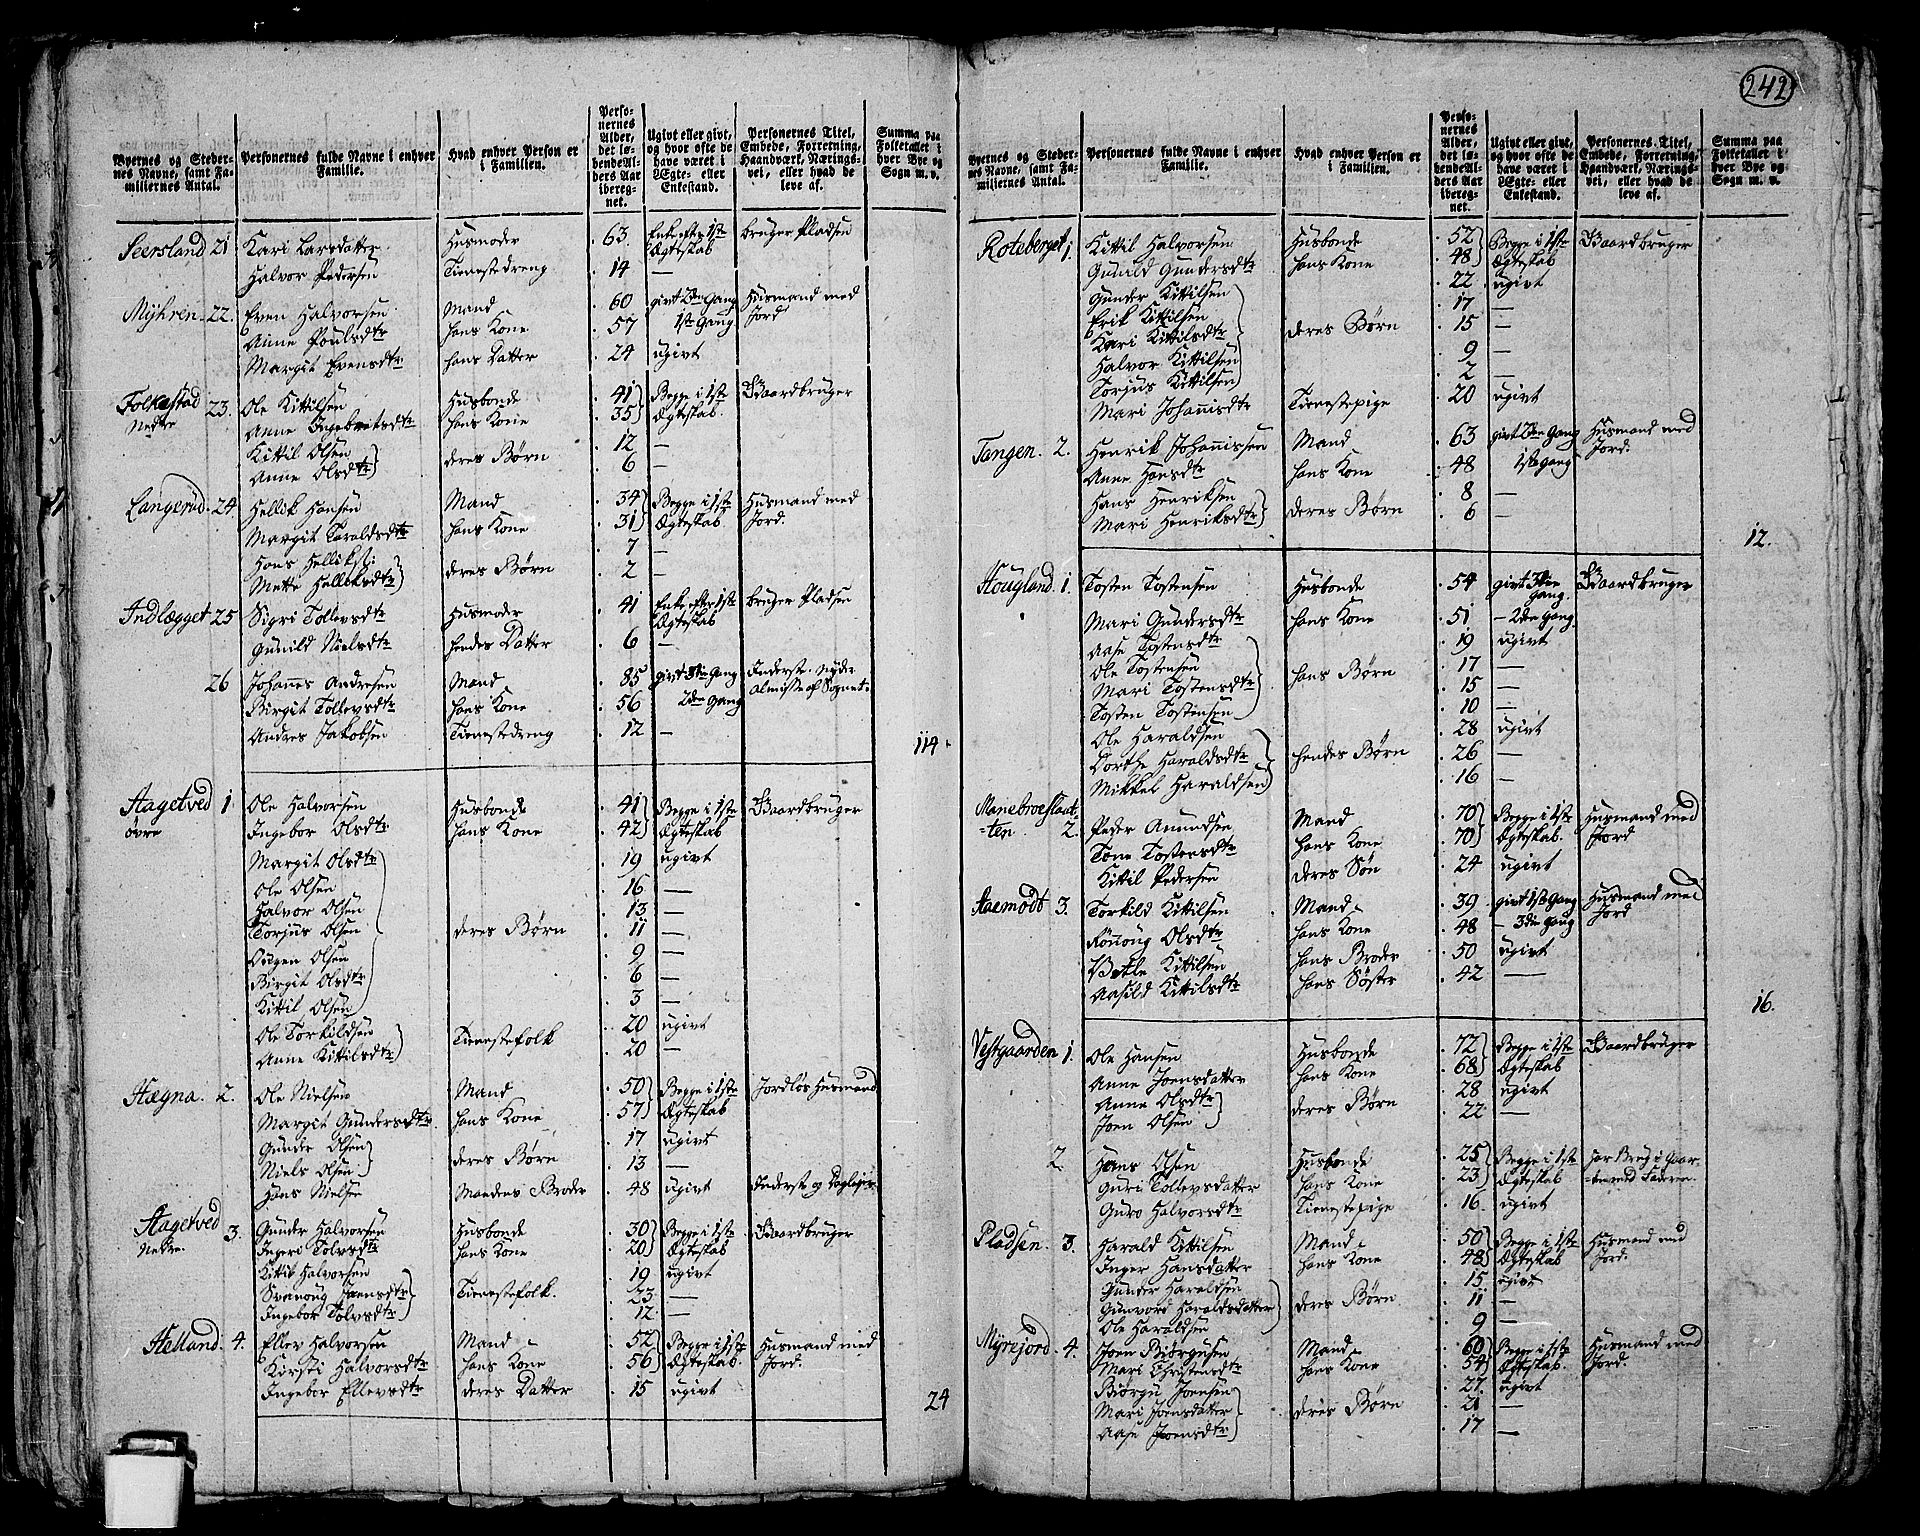 242
Byernes og Stedernes Navne, samt Familiernes Antal. | Personernes fulde Navne i enhver Familie. | Hvad enhver Person er i Familien. | Personernes Alder, det løbende Alders Aar iberegnet. | Ugivt eller givt, og hvor ofte de have været i Ægte- eller Enkestand. | Personernes Titel, Embede, Forretning, Haandværk, Næringsvei, eller hvad de leve af. | Summa paa Folketallet i hver Bye og Sogn m. v.
Seersland 21 Kari Larsdatter Husmoder 63. Enke efter 1ste Ægteskab bruger Pladsen
Halvor Pedersen Tienestedreng 14 —
Myhren 22. Even Halvorsen Mand 60 givt 2den Gang Husmand med Jord
Anne Poulsdtr hans Kone 57 1ste Gang
Margit Evensdtr hans Datter 24 ugivt
Folkestad Nedre 23. Ole Kittilsen Husbonde 41 Begge i 1ste Ægteskab. Gaardbruger
Anne Ingebretsdtr hans Kone 35
Kittil Olsen deres Børn 12 —
Anne Olsdtr 6 —
Langerud 24 Hellik Hansen Mand 34 Begge i 1ste Ægteskab Husmand med Jord.
Margit Taraldsdtr hans Kone 31
Hans Helliks: deres Børn 7 —
Mette Helliksdtr 2 —
Indlægget 25 Sigri Tollevsdtr Husmoder 41 Enke efter 1ste Ægteskab bruger Pladsen
Gunild Nielsdtr hendes Datter 6 —
26 Johannes Andresen Mand 85 givt 3die Gang Inderste. nyder Almisse af Sognet.
Birgit Tollevsdtr hans Kone 56 2den Gang
Andres Jakobsen Tienestedreng 12 —
114
Aagetved øvre 1 Ole Halvorsen Husbonde 41 Begge i 1ste Ægteskab Gaardbruger
Ingebor Olsdtr hans Kone 42
Margit Olsdtr deres Børn 19 ugivt
Ole Olsen 16 —
Halvor Olsen 13 —
Torjus Olsen 11 —
Olsen 9 —
Birgit Olsdtr 6 —
Kittil Olsen 3 —
Ole Torkildsen Tienestefolk 20 ugivt
Anne Kittilsdtr 20 —
Hægna 2. Ole Nielsen Mand 50 Begge i 1ste Ægteskab Jordløs Husmand
Margit Gundersdtr hans Kone 57
Gunder Olsen deres Børn 17 ugivt
Niels Olsen 13 —
Hans Nielsen Mandens Broder 48 ugivt Inderst og Dagleier
Aagetved Nedre. 3. Gunder Halvorsen Husbonde 30 Begge i 1ste Ægteskab Gaardbruger
Ingeri Tolvsdtr hans Kone 20
Kittil Halvorsen Tienestefolk. 19 ugivt
Svanoug Joensdtr 23 —
Ingebor Tolvsdtr 12 —
Helland 4. Ellev Halvorsen Mand 52 Begge i 1ste Ægteskab. Husmand med Jord.
Kirsti Halvorsdtr hans Kone 56
Ingebor Ellevsdtr deres Datter 15 ugivt
24
Byernes og Stedernes Navne, samt Familiernes Antal. | Personernes fulde Navne i enhver Familie. | Hvad enhver Person er i Familien. | Personernes Alder, det løbende Alders Aar iberegnet. | Ugivt eller givt, og hvor ofte de have været i Ægte- eller Enkestand. | Personernes Titel, Embede, Forretning, Haandværk, Næringsvei, eller hvad de leve af. | Summa paa Folketallet i hver Bye og Sogn m. v.
Roteberget 1. Kittil Halvorsen Husbonde 52 Begge i 1ste Ægteskab Gaardbruger
Gunild Gundersdtr hans Kone 48
Gunder Kittilsen deres Børn 22 ugivt
Erik Kittilsen 17 —
Kari Kittilsdtr 15 —
Halvor Kittilsen 9 —
Torjus Kittilsen 2 —
Mari Johannisdtr Tienestepige 20 ugivt
Tangen 2. Henrik Johannissen Mand 63 givt 2den Gang Husmand med Jord.
Anne Hansdtr hans Kone 48 1ste Gang
Hans Henriksen deres Børn 8 —
Mari Henriksdtr 6 —
12.
Hougland 1. Tosten Tostensen Husbonde 54 givt 3die Gang. Gaardbruger
Mari Gundersdtr hans Kone 51 — 2den Gang.
Aase Tostensdtr hans Børn 19 ugivt
Ole Tostensen 17 —
Mari Tostensdtr 15 —
Tosten Tostensen 10 —
Ole Haraldsen hendes Børn 28 ugivt
Dorthe Haraldsdtr 26 —
Mikkel Haraldsen 16 —
2. Peder Amundsen Mand 70 Begge i 1ste Ægteskab. Husmand med Jord
Tone Tostensdtr hans Kone 70
Kittil Pedersen deres Søn 24 ugivt
Aaemodt 3. Torkild Kittilsen Mand 39 givt 1ste Gang Husmand med Jord
Rønoug Olsdtr hans Kone 48 — 3die Gang
Botle Kittilsen hans Broder 50 ugivt
Aasild Kittilsdtr hans Søster 42 —
16.
Vestgaarden 1. Ole Hansen Husbonde 72 Begge i 1ste Ægteskab Gaardbruger
Anne Joensdatter hans Kone 68
Anne Olsdtr deres Børn 28 ugivt
Joen Olsen 22 —
2. Hans Olsen Husbonde 25 Begge i 1ste Ægteskab har Brug i Gaarden med Faderen.
Guri Tollevsdatter hans Kone 23
Guro Halvorsdtr Tienestepige 16 ugivt
Pladsen. 3. Harald Kittilsen Mand 50 Begge i 1ste Ægteskab Husmand med Jord.
Inger Hansdatter hans Kone 48
Gunder Haraldsen deres Børn 15 ugivt
Gunvord Haraldsdatter 11 —
Ole Haraldsen 9 —
Myrejord. 4. Joen Biørgusen Mand 60 Begge i 1ste Ægteskab. Husmand med Jord.
Mari Christensdtr hans Kone 54
Biørgu Joensen deres Børn 27. ugivt
Mari Joensdatter 21 —
Aase Joensdtr 17 —